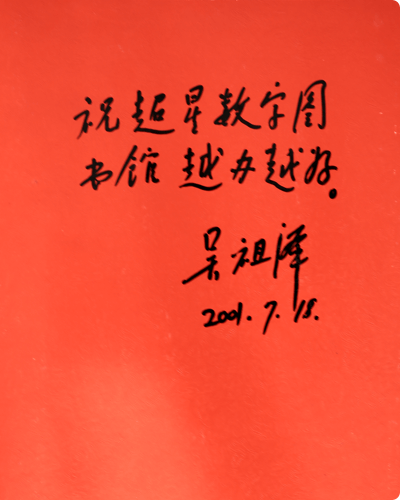 祝超星数字图
书馆越办越好。
吴祖泽
2001.7.18.